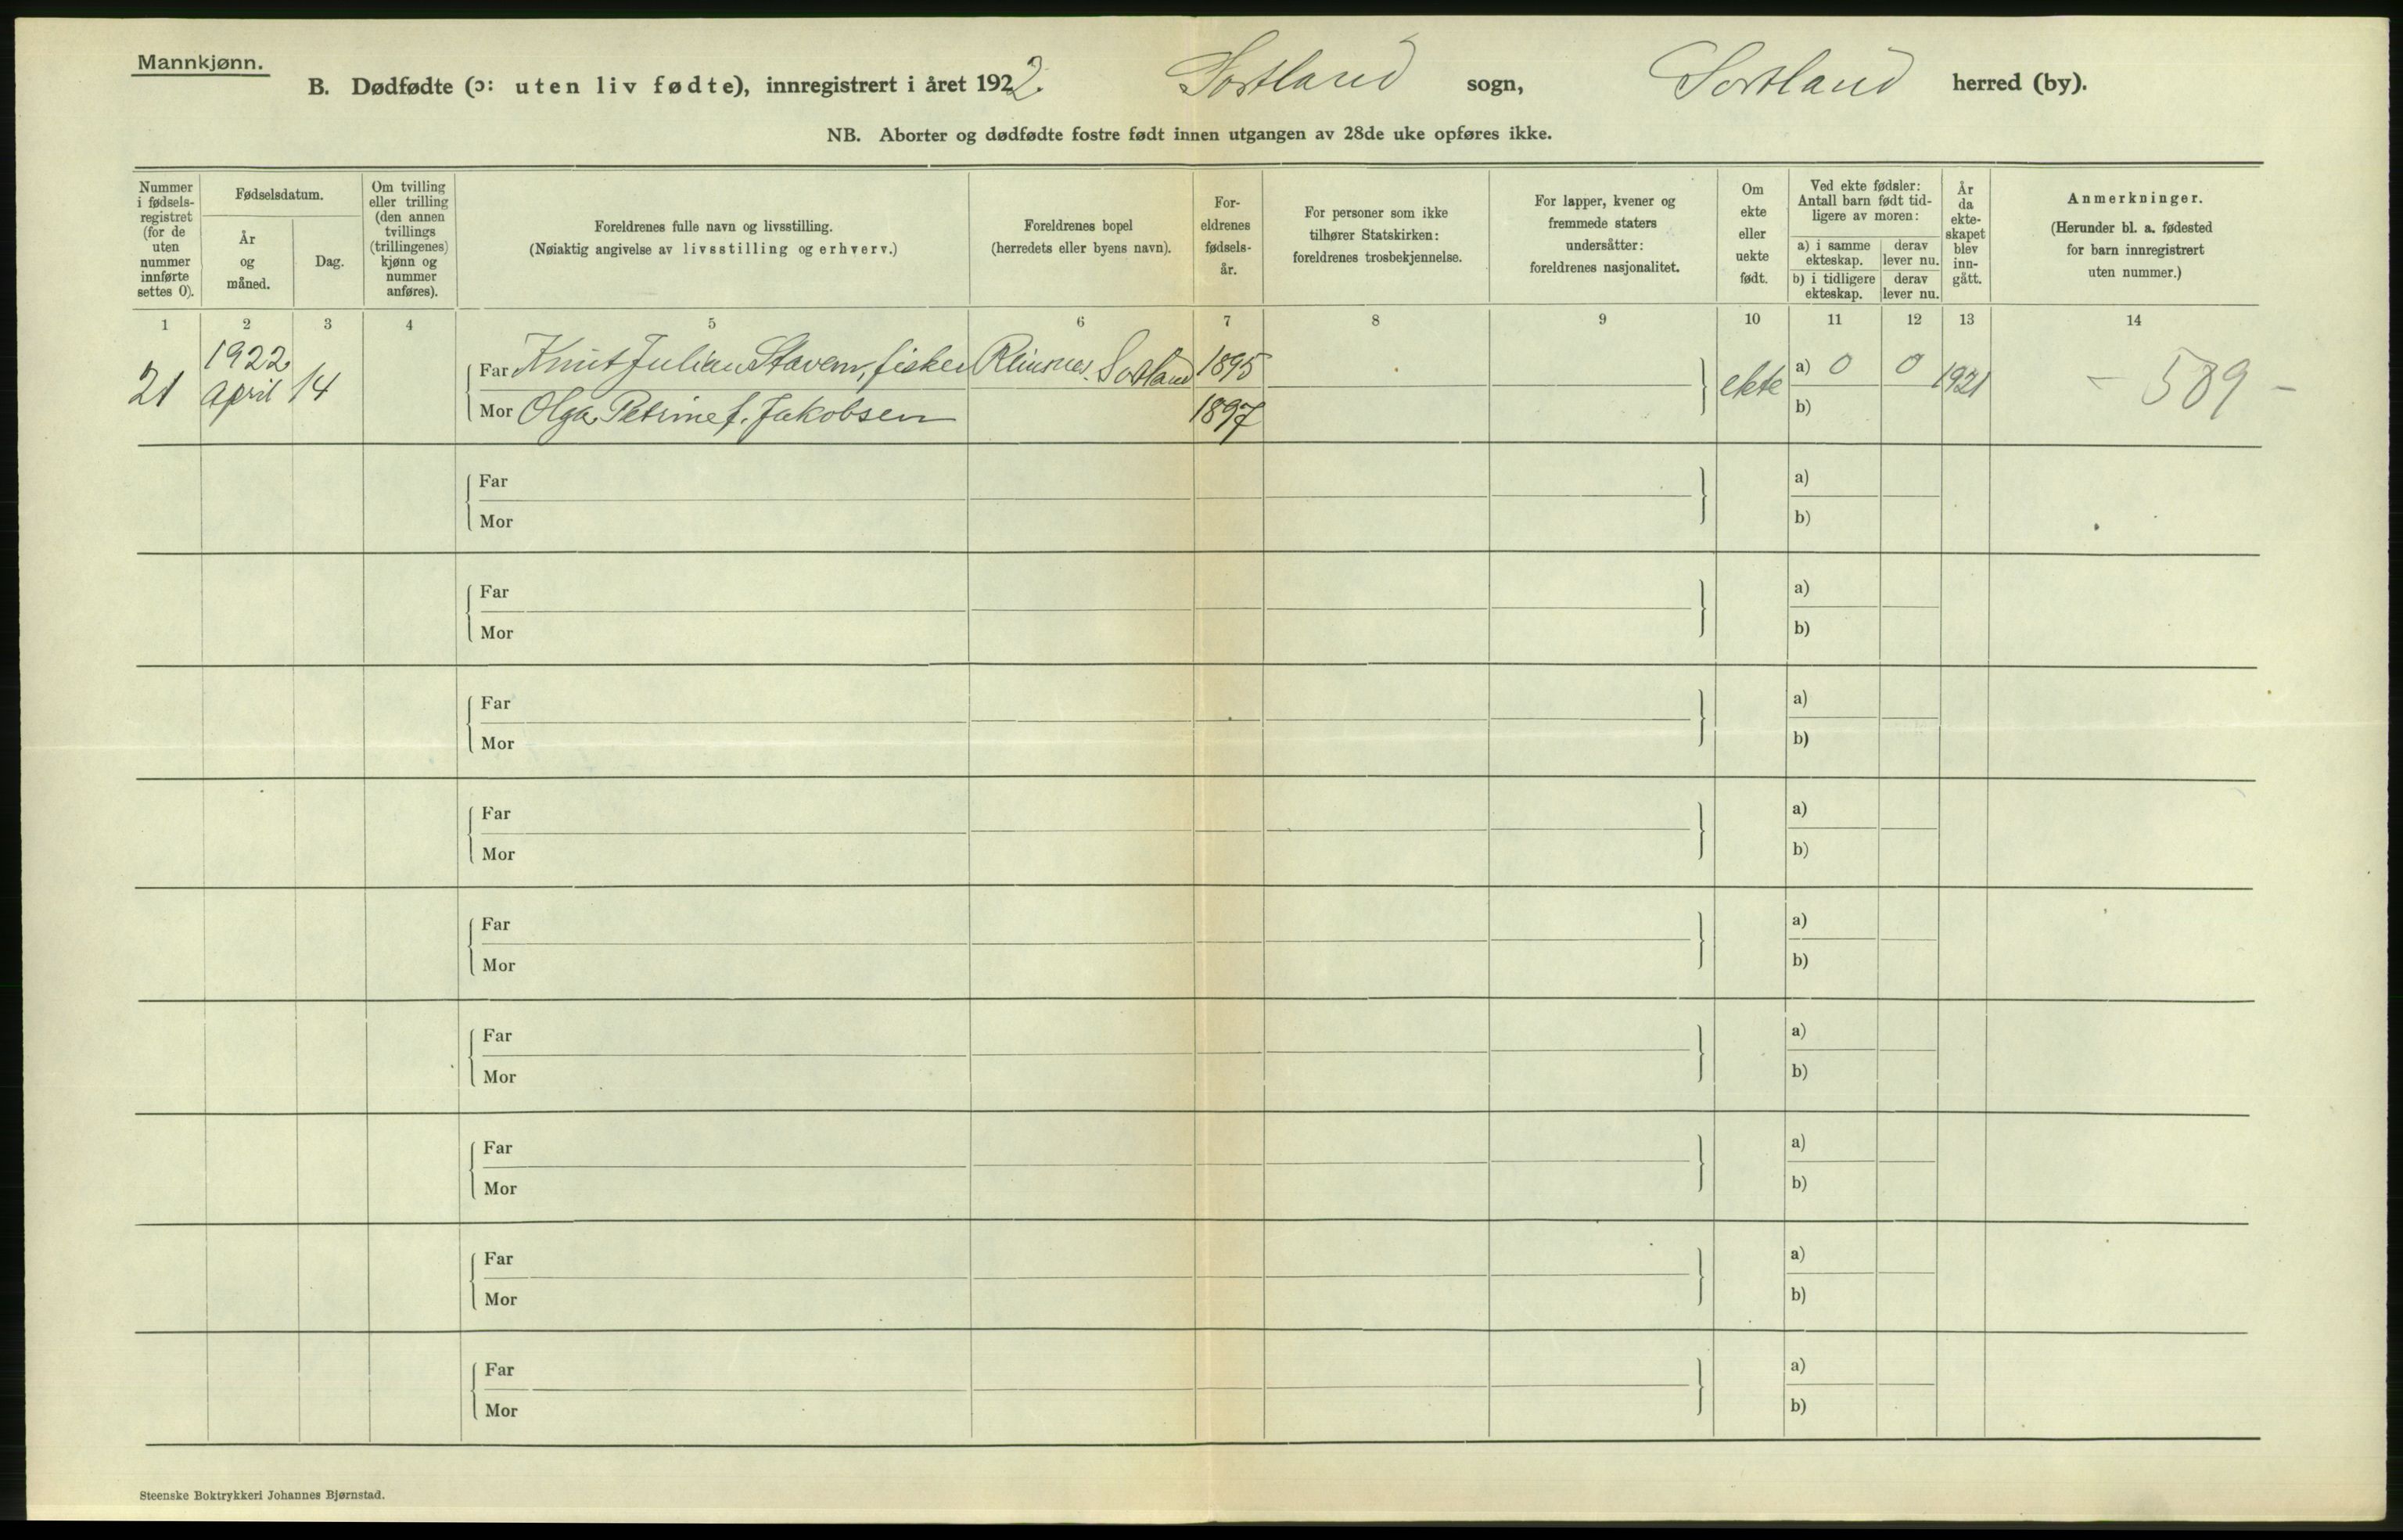 Mannkjønn.
B. Dødfødte (ɔ: uten liv fødte), innregistrert i året 1922. Sortland sogn, Sortland herred (by).
NB. Aborter og dødfødte fostre født innen utgangen av 28de uke opføres ikke.
Nummer i fødsels-registret (for de uten nummer innførte settes 0).
Fødselsdatum.
År og måned.
Dag.
Om tvilling eller trilling (den annen tvillings (trillingenes) kjønn og nummer anføres).
Foreldrenes fulle navn og livsstilling.
(Nøiaktig angivelse av livsstilling og erhverv.)
Foreldrenes bopel
(herredets eller byens navn).
For-eldrenes fødsels-år.
For personer som ikke tilhører Statskirken: foreldrenes trosbekjennelse.
For lapper, kvener og fremmede staters undersåtter: foreldrenes nasjonalitet.
Om ekte eller uekte født.
Ved ekte fødsler: Antall barn født tid-ligere av moren:
a) i samme ekteskap. derav lever nu.
b) i tidligere ekteskap. derav lever nu.
År da ekte-skapet blev inn-gått.
Anmerkninger.
(Herunder bl. a. fødested for barn innregistrert uten nummer.)
1 2 3 4 5 6 7 8 9 10 11 12 13 14
21 1922 april 14
Far Knut Julian Stavem, fisker Sortland 1895
Mor Olga Petrine f. Jakobsen 1897
ekte a) 0 0 1921 - 589 -
b)
Far a)
Mor b)
Far a)
Mor b)
Far a)
Mor b)
Far a)
Mor b)
Far a)
Mor b)
Far a)
Mor b)
Far a)
Mor b)
Far a)
Mor b)
Far a)
Mor b)
Steenske Boktrykkeri Johannes Bjørnstad.